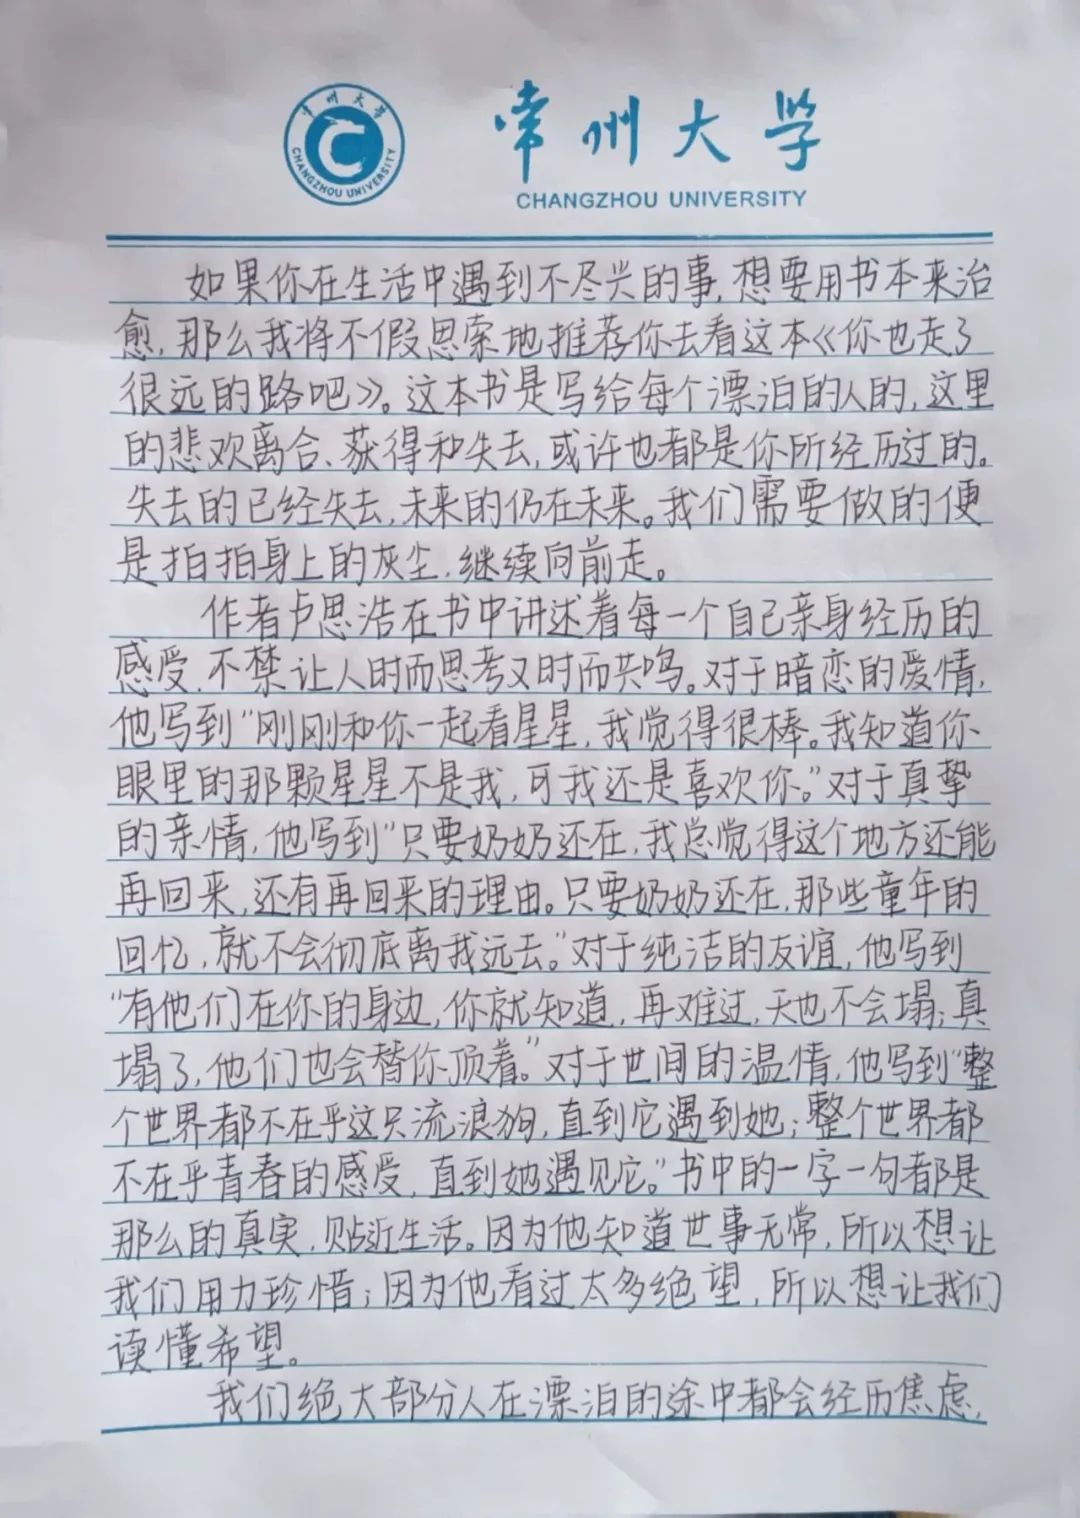 常州大学
CHANGZHOU UNIVERSITY
常州大学
CHANGZHOU UNIVERSITY
如果你在生活中遇到不尽兴的事,想要用书本来治
愈,那么我将不假思索地推荐你去看这本《你也走了
很远的路吧》。这本书是写给每个漂泊的人的,这里
的悲欢离合、获得和失去,或许也都是你所经历过的。
失去的已经失去,未来的仍在未来。我们需要做的便
是拍拍身上的灰尘,继续向前走。
作者卢思浩在书中讲述着每一个自己亲身经历的
感受,不禁让人时而思考又时而共鸣。对于暗恋的爱情,
他写到“刚刚和你一起看星星,我觉得很棒。我知道你
眼里的那颗星星不是我,可我还是喜欢你。”对于真挚
的亲情,他写到“只要奶奶还在,我总觉得这个地方还能
再回来,还有再回来的理由。只要奶奶还在,那些童年的
回忆,就不会彻底离我远去。”对于纯洁的友谊,他写到
“有他们在你的身边,你就知道,再难过,天也不会塌;真
塌了,他们也会替你顶着。”对于世间的温情,他写到“整
个世界都不在乎这只流浪狗,直到它遇到她;整个世界都
不在乎青春的感受,直到她遇见它。”书中的一字一句都是
那么的真实,贴近生活。因为他知道世事无常,所以想让
我们用力珍惜;因为他看过太多绝望,所以想让我们
读懂希望。
我们绝大部分人在漂泊的途中都会经历焦虑,